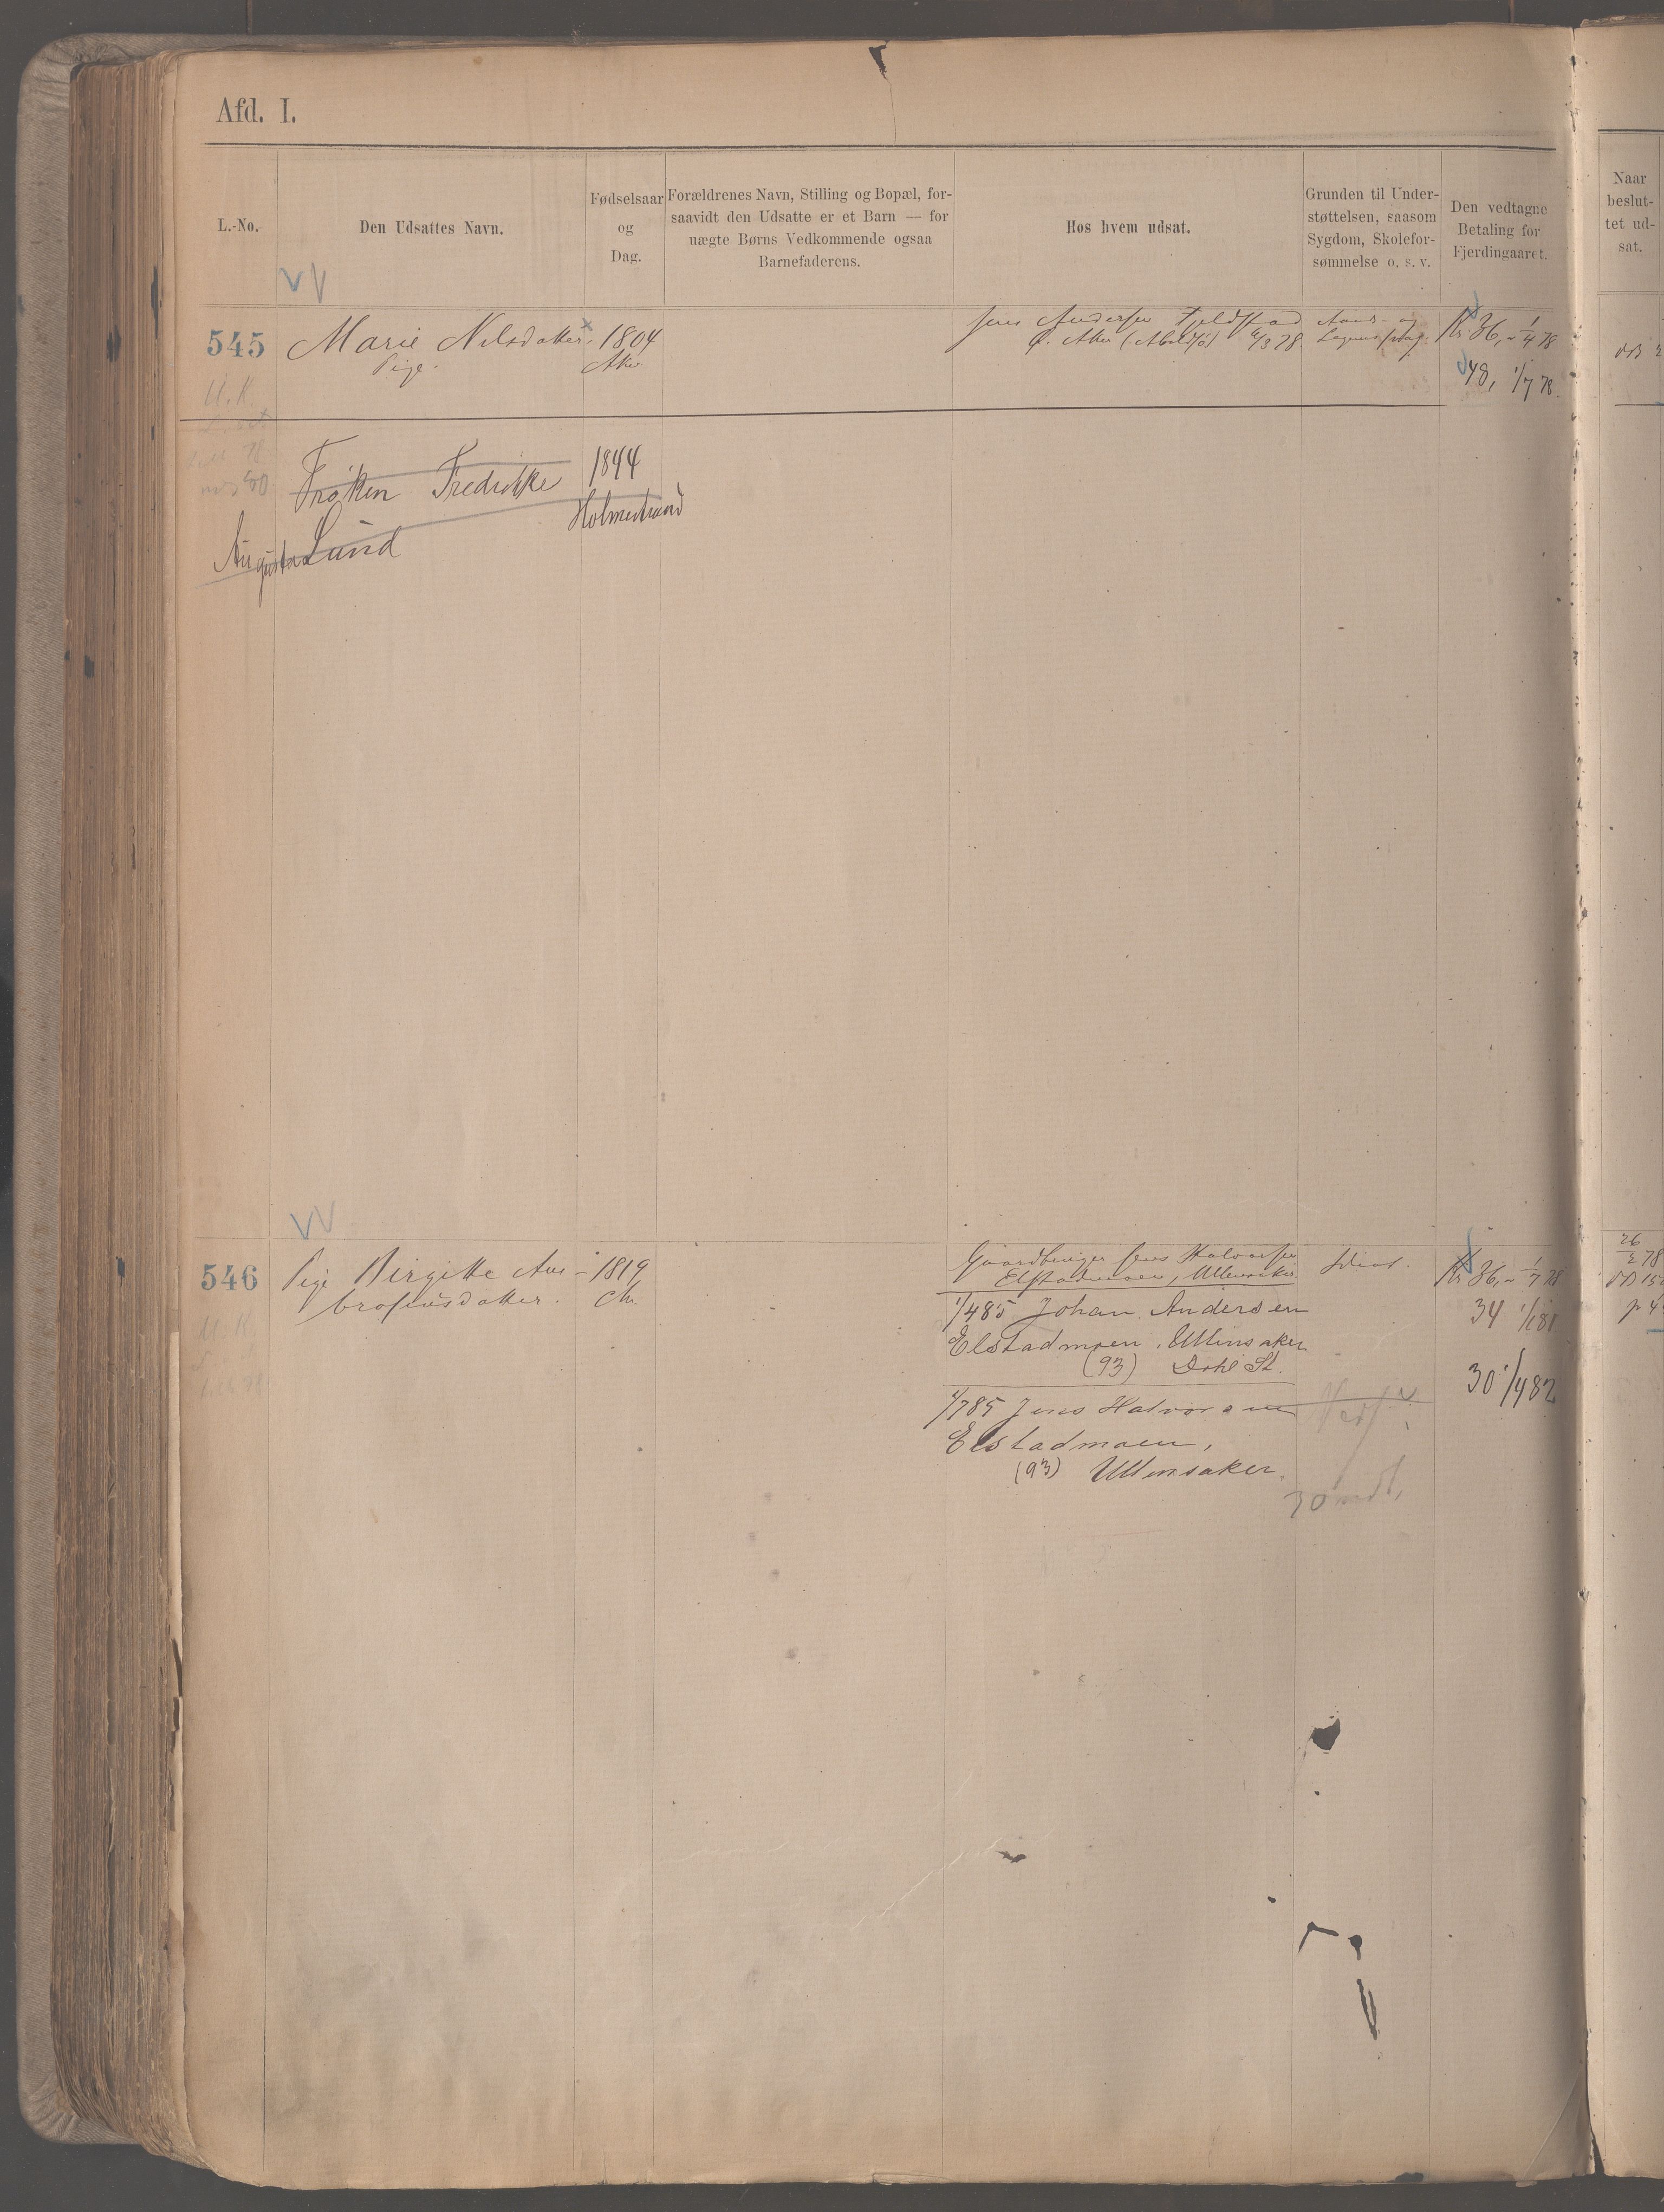 Afd. I.
L.-No.
Den Udsattes Navn.
Fødselsaar
og
Dag.
Forældrenes Navn, Stilling og Bopæl, for-
saavidt den Udsatte er et Barn — for
uægte Børns Vedkommende ogsaa
Barnefaderens.
Hos hvem udsat.
Grunden til Under-
støttelsen, saasom
Sygdom, Skolefor-
sømmelse o. s. v.
Den vedtagne
Betaling for
Fjerdingaaret.
Naar
beslut-
tet ud-
sat.
545
Marie Nilsdatter
Pige.
1804
Aker
Jens Andersen
Ø. Aker
Kr 36, 1/4 78
48, 1/7 78.
Frøken Fredrikke
Augusta Lund
1844
Holmestrand
546
Pige Birgitte Am-
brosiusdatter.
1819
Chr.
Gaardbruger Jens Halvorsen
Elstadmoen, Ullensaker
1/4 85 Johan Andersen
Elstadmoen, Ullensaker
(93) Dahl St.
1/7 85 Jens Halvorsen
Elstadmoen,
(93) Ullensaker.
Idiot.
Kr 36, 1/7 78
34 1/1 81
30 1/4 82
26
2 78